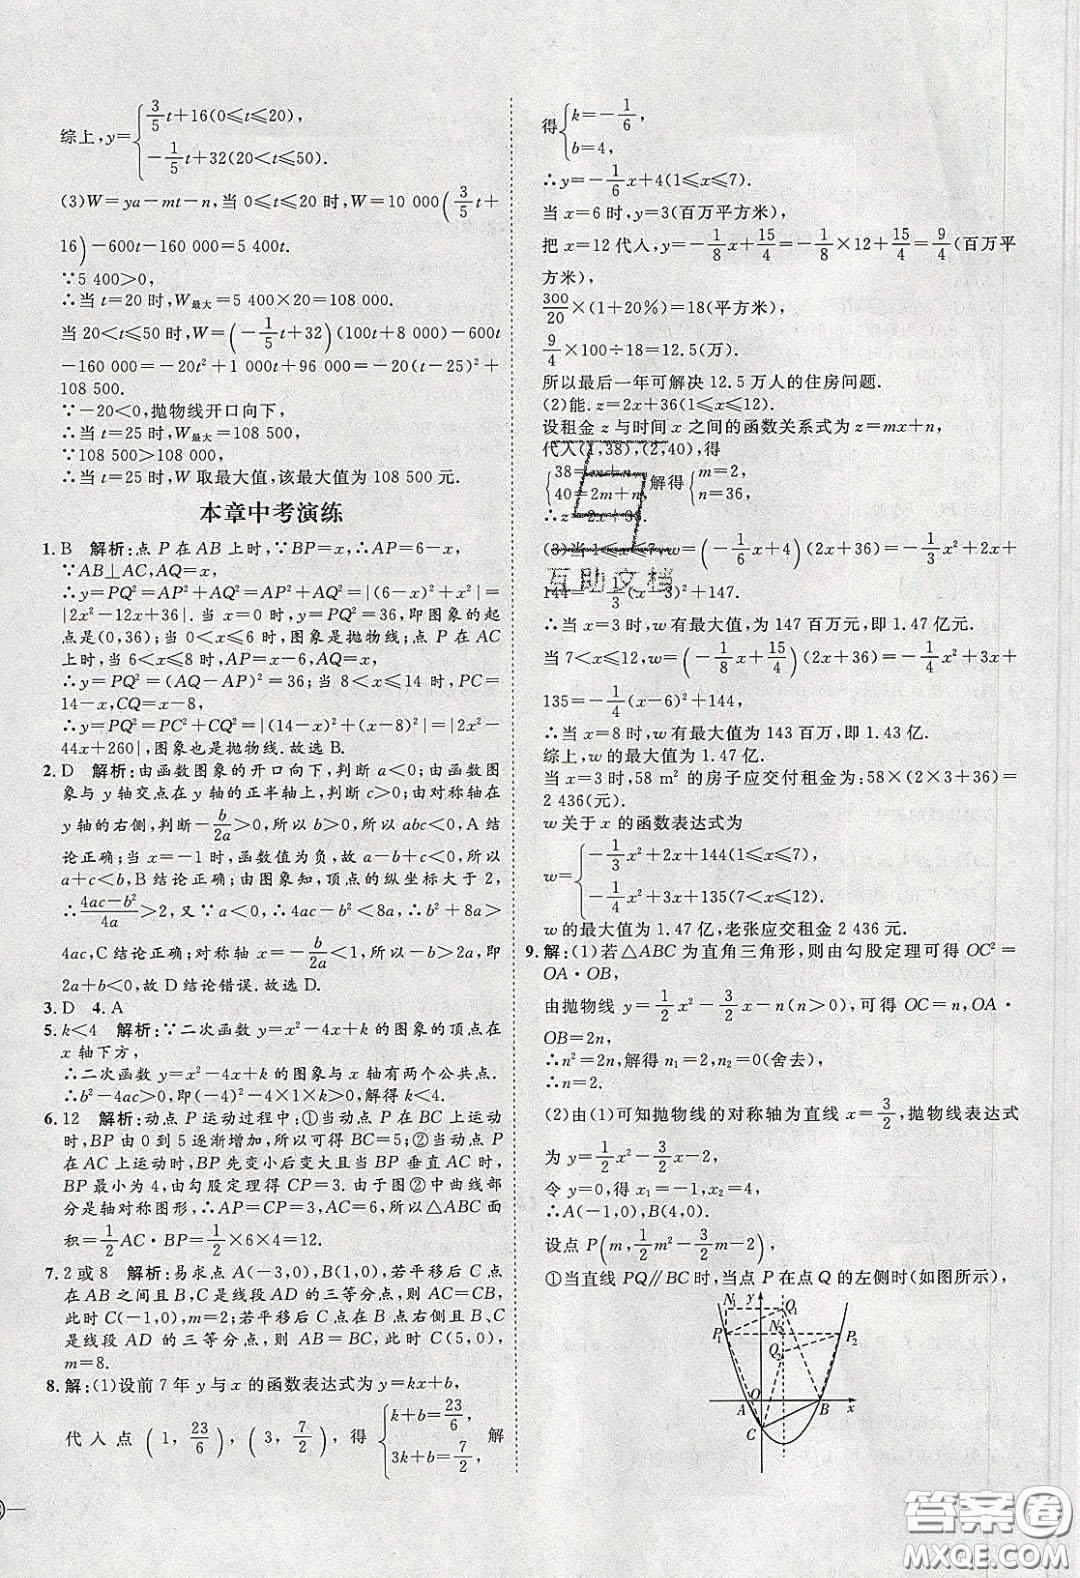 综上,y={3/5t+16(0≤t≤20),
-1/5t+32(20<t≤50).
(3)W=ya-mt-n,当 0≤t≤20 时,W=10 000(3/5t+
16)-600t-160 000=5 400t.
∵5 400>0,
∴当 t=20 时,W最大=5 400×20=108 000.
当 20<t≤50 时,W=(-1/5t+32)(100t+8 000)-600t
-160 000=-20t²+1 000t+96 000=-20(t-25)²+
108 500.
∵-20<0,抛物线开口向下,
∴当 t=25 时,W最大=108 500,
∵108 500>108 000,
∴当 t=25 时,W 取最大值,该最大值为 108 500 元.
本章中考演练
1. B 解析:点 P 在 AB 上时,∵BP=x,∴AP=6-x,
∵AB⊥AC,AQ=x,
∴y=PQ²=AP²+AQ²=AP²+AQ²=|(6-x)²+x²|=
|2x²-12x+36|.当 x=0 时,y=PQ²=36,即图象的起
点是(0,36);当 0<x≤6 时,图象是抛物线;点 P 在 AC
上时,当 6<x≤8 时,AP=x-6,AQ=x,
∴y=PQ²=(AQ-AP)²=36;当 8<x≤14 时,PC=
14-x,CQ=x-8,
∴y=PQ²=PC²+CQ²=|(14-x)²+(x-8)²|=|2x²-
44x+260|,图象也是抛物线.故选 B.
2. D 解析:由函数图象的开口向下,判断 a<0;由函数图
象与 y 轴交点在 y 轴的正半轴上,判断 c>0;由对称轴在
y 轴的右侧,判断-b/2a>0,所以 b>0,所以 abc<0,A 结
论正确;当 x=-1 时,函数值为负,故 a-b+c<0,所以
a+c<b,B 结论正确;由图象知,顶点的纵坐标大于 2,
∴(4ac-b²)/4a>2,又∵a<0,∴4ac-b²<8a,∴b²+8a>
4ac,C 结论正确;对称轴 x=-b/2a<1,a<0,-b>2a,即
2a+b<0,故 D 结论错误.故选 D.
3. D 4. A
5. k<4 解析:∵二次函数 y=x²-4x+k 的图象的顶点在
x 轴下方,
∴二次函数 y=x²-4x+k 的图象与 x 轴有两个公共点.
∴b²-4ac>0,即(-4)²-4×1×k>0,解得 k<4.
6. 12 解析:动点 P 运动过程中:①当动点 P 在 BC 上运动
时,BP 由 0 到 5 逐渐增加,所以可得 BC=5;②当动点 P
在 AC 上运动时,BP 先变小后变大且当 BP 垂直 AC 时,
BP 最小为 4,由勾股定理得 CP=3.由于图②中曲线部
分是轴对称图形,∴AP=CP=3,AC=6.所以△ABC 面
积=1/2AC·BP=1/2×6×4=12.
7. 2 或 8 解析:易求点 A(-3,0),B(1,0),若平移后 C 点
在 AB 之间且 B、C 是线段 AD 的三等分点,则 AC=CB,
此时 C(-1,0),m=2;若平移后 C 点在 B 点右侧且 B、C
是线段 AD 的三等分点,则 AB=BC,此时 C(5,0),
m=8.
8. 解:(1)设前 7 年 y 与 x 的函数表达式为 y=kx+b,
代入点(1,23/6),(3,7/2),得{k+b=23/6, 解
3k+b=7/2,
得{k=-1/6,
b=4,
∴y=-1/6x+4(1≤x≤7).
当 x=6 时,y=3(百万平方米),
把 x=12 代入,y=-1/8x+15/4=-1/8×12+15/4=9/4(百万平
方米),
300/20×(1+20%)=18(平方米),
9/4×100÷18=12.5(万).
所以最后一年可解决 12.5 万人的住房问题.
(2)能. z=2x+36(1≤x≤12).
设租金 z 与时间 x 之间的函数关系式为 z=mx+n,
代入(1,38),(2,40),得
{38=m+n, 解得{m=2,
40=2m+n, n=36,
∴z=2x+36.
(3)当 1≤x≤7,w=(-1/6x+4)(2x+36)=-1/3x²+2x+
144=-1/3(x-3)²+147,
互助文档
∴当 x=3 时,w 有最大值,为 147 百万元,即 1.47 亿元.
当 7<x≤12,w=(-1/8x+15/4)(2x+36)=-1/4x²+3x+
135=-1/4(x-6)²+144,
∴当 x=8 时,w 有最大值为 143 百万,即 1.43 亿.
综上,w 的最大值为 1.47 亿元.
当 x=3 时,58 m² 的房子应交付租金为:58×(2×3+36)=
2 436(元).
w 关于 x 的函数表达式为
w={-1/3x²+2x+144(1≤x≤7),
-1/4x²+3x+135(7<x≤12).
w 的最大值为 1.47 亿,老张应交租金 2 436 元.
9. 解:(1)若△ABC 为直角三角形,则由勾股定理可得 OC²=
OA·OB,
由抛物线 y=1/2x²-3/2x-n(n>0),可得 OC=n,OA·
OB=2n,
∴n²=2n,解得 n₁=2,n₂=0(舍去),
∴n=2.
(2)由(1)可知抛物线的对称轴为直线 x=3/2,抛物线表达式
为 y=1/2x²-3/2x-2,
令 y=0,得 x₁=-1,x₂=4,
∴A(-1,0),B(4,0).
设点 P(m,1/2m²-3/2m-2),
①当直线 PQ∥BC 时,当点 P 在点 Q 的左侧时(如图所示),
N₁ y Q₁
P₁ N₂ P₂
Q₂
A O B x
C
答案圈
MXQE.COM